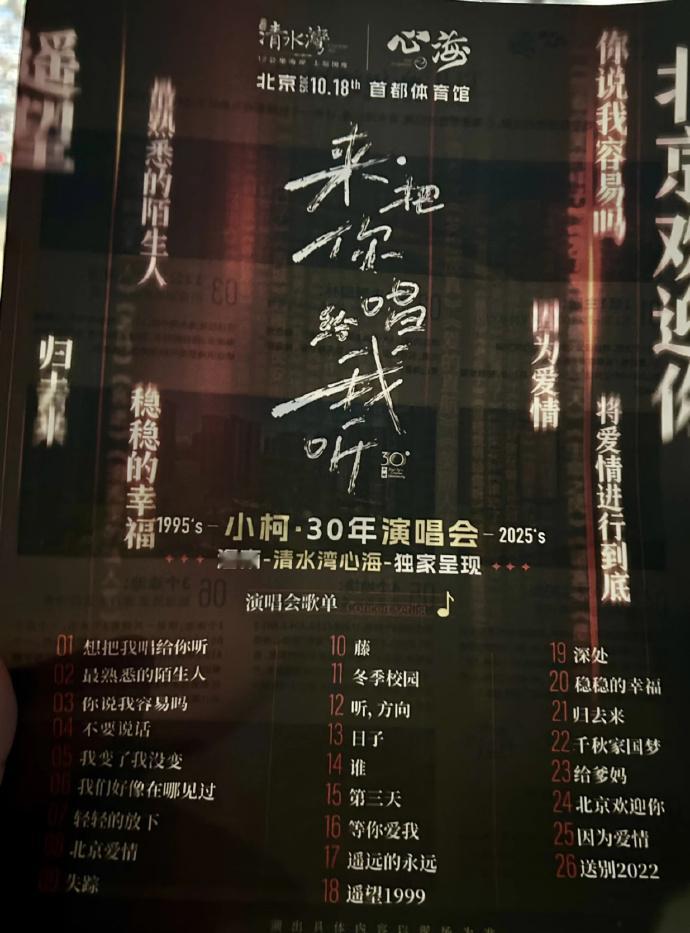 清水湾
心海
北京2025 10.18th 首都体育馆
遥望
最熟悉的陌生人
你说我容易吗
北京欢迎你
来·把
你
唱
给
我
听
30°
归去来
稳稳的幸福
因为爱情
将爱情进行到底
1995's—小柯·30年演唱会—2025's
-清水湾心海-独家呈现
演唱会歌单
01 想把我唱给你听
02 最熟悉的陌生人
03 你说我容易吗
04 不要说话
05 我变了我没变
06 我们好像在哪见过
07 轻轻的放下
08 北京爱情
09 失踪
10 藤
11 冬季校园
12 听,方向
13 日子
14 谁
15 第三天
16 等你爱我
17 遥远的永远
18 遥望1999
19 深处
20 稳稳的幸福
21 归去来
22 千秋家国梦
23 给爹妈
24 北京欢迎你
25 因为爱情
26 送别2022